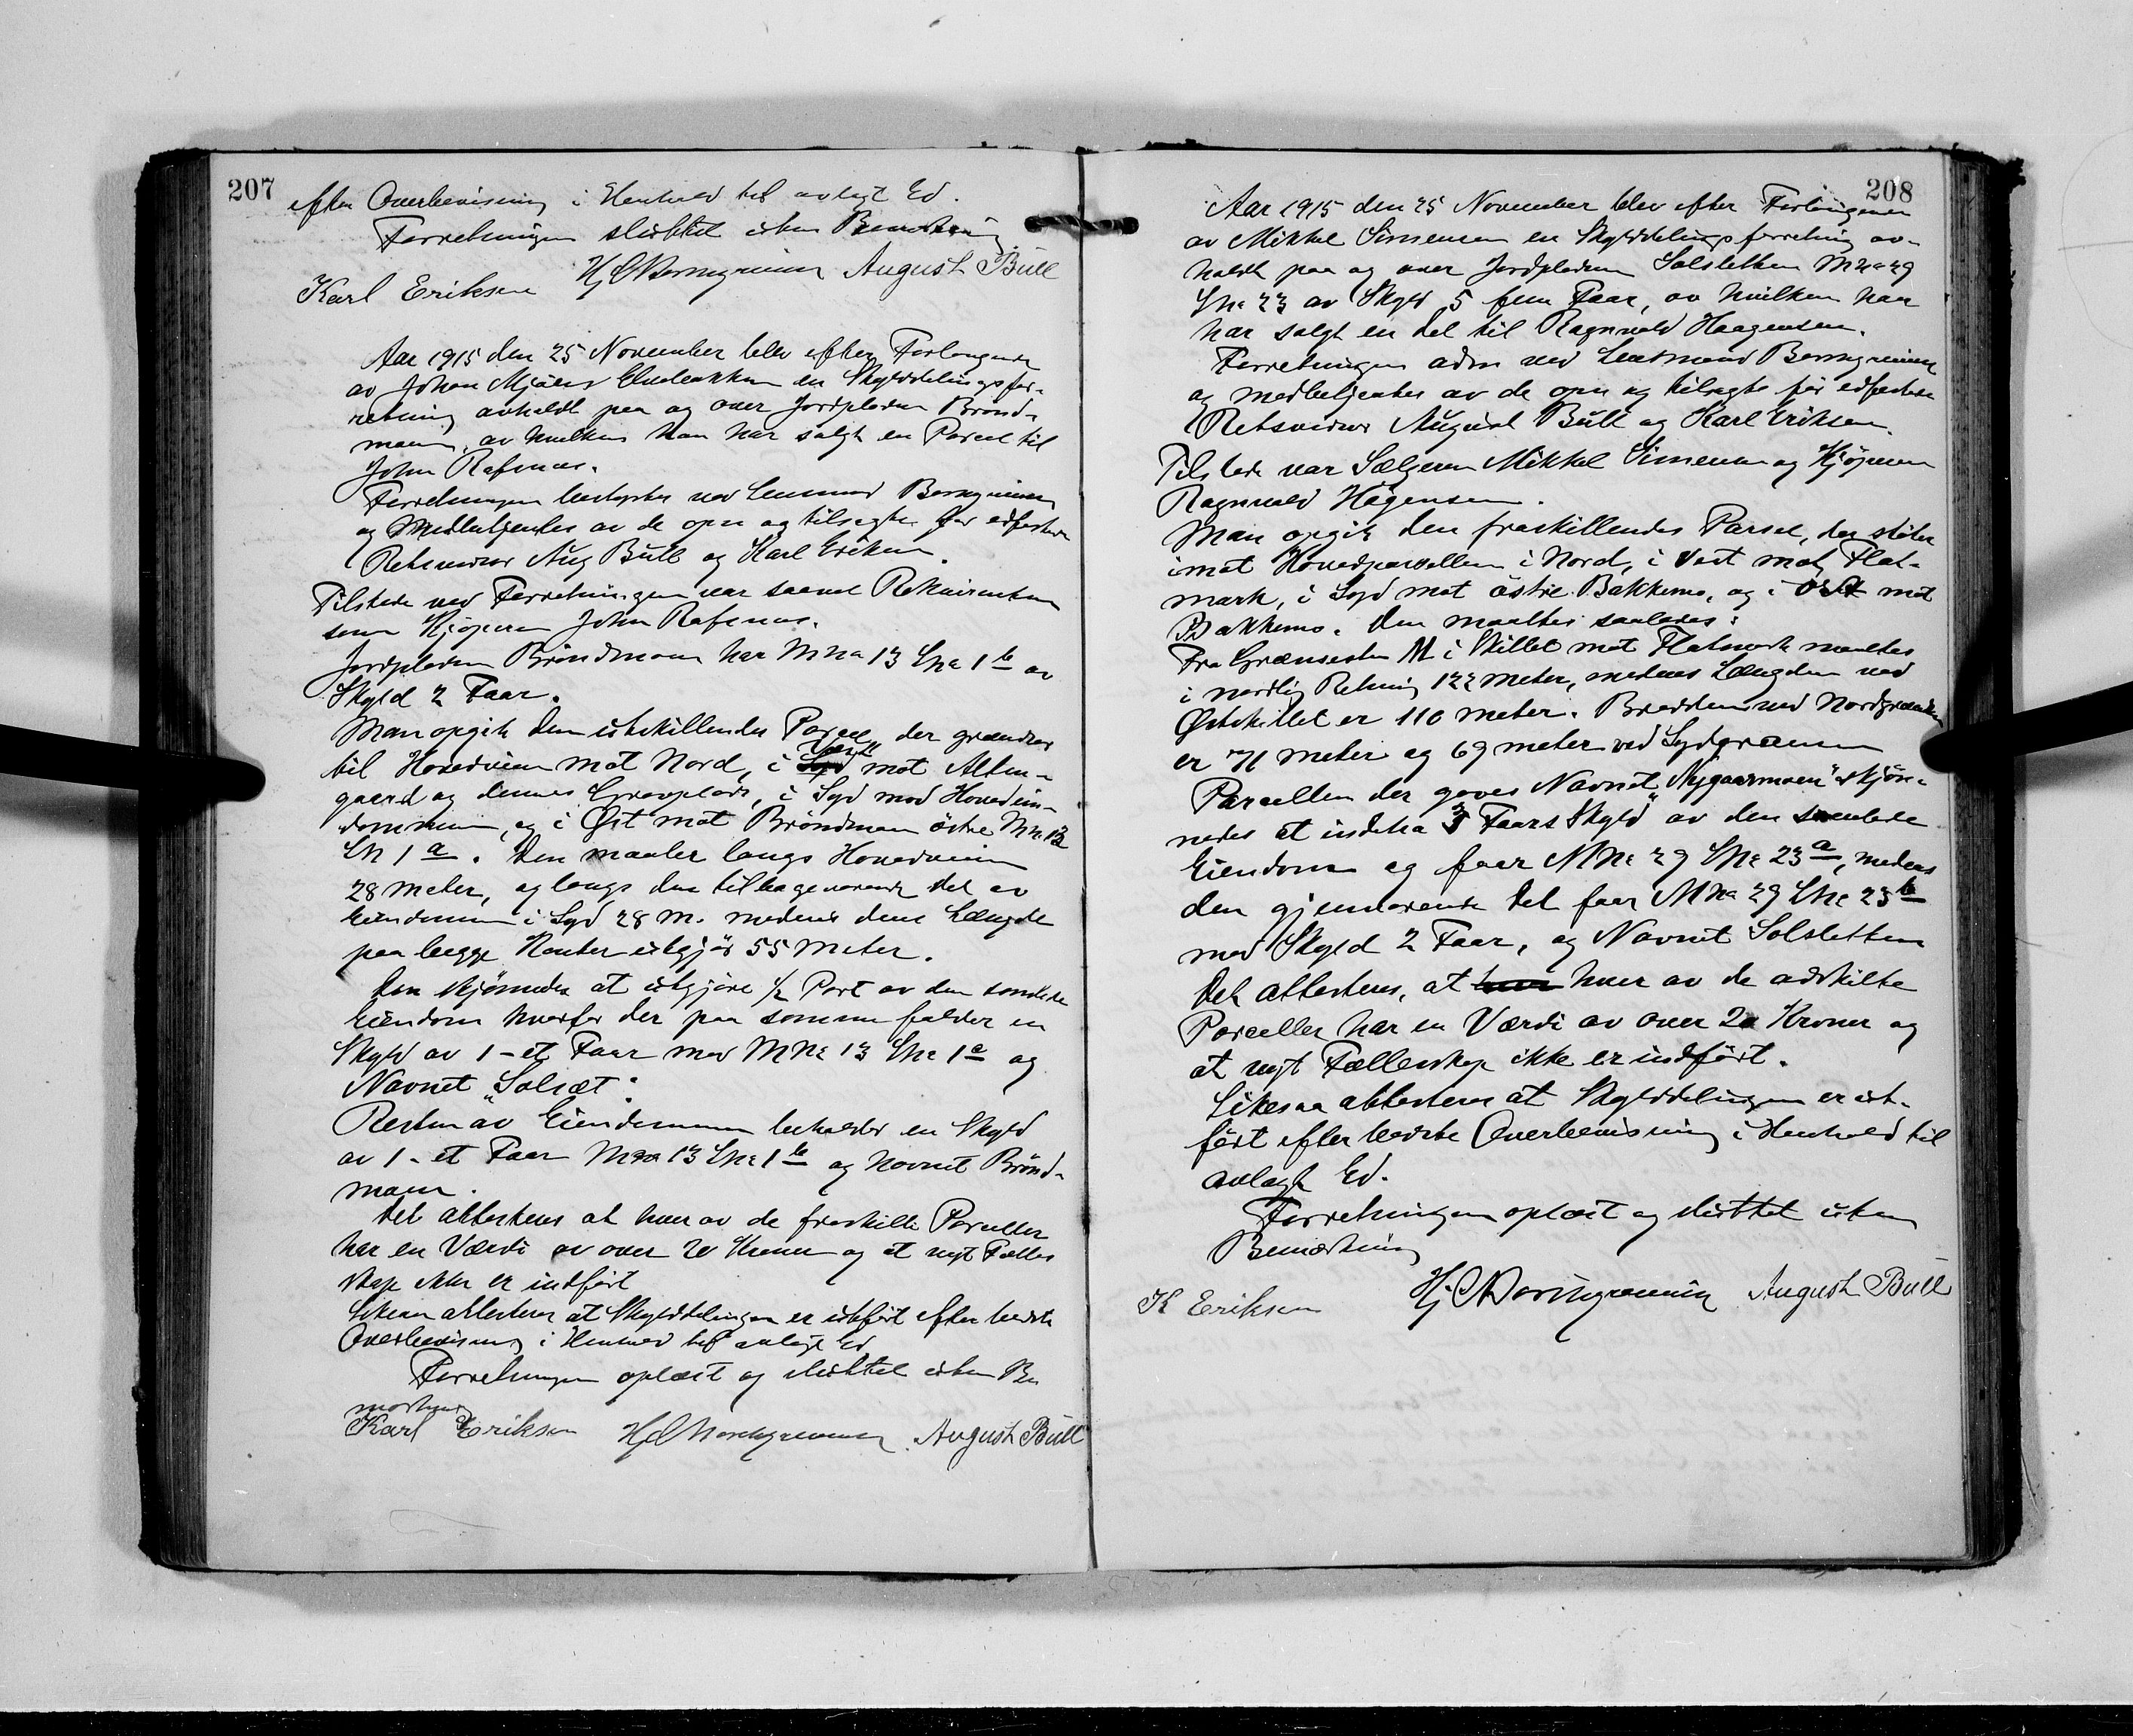 207
efter Overbevisning i Henhold til avlagt Ed.
Forretningen sluttet uten Bemerkning
Karl Eriksen August Bull
Aar 1915 den 25 November blev efter Forlangende
av Johan Mjøen Elvebakken en Skylddelingsfor-
retning avholdt paa og over Jordpladsen Brønd-
moen, av hvilken han har solgt en Parcel til
John Rafsnes.
Forretningen bestyrtes ved Lensmand
og Medbetjentes av de opn og tilsagte før edfestede
Retsvidner Aug Bull og Karl Eriksen.
Tilstede ved Forretningen var saavel Rekvirenten
som Kjøperen John Rafsnes.
Jordpladsen Brøndmoen har Mno 13 Lno 1 b av
Skyld 2 Faar.
Man opgik den utskillendes Parcel, der grændser
til Hovedveien mot Nord, i Vest mot Alten-
gaard og dennes Gravplads, i Syd mod Hovedein-
dommen, og i Øst mot Brøndmoen østre Mn. 13
Ln 1 a. Den maaler langs Hovedveien
28 meter, og langs den tilbageværende Del av
Eiendommen i Syd 28 m. medens dens Længde
paa begge Kanter utgjør 55 meter.
Den skjønnedes at utgjøre 1/2 Part av den samlede
Eiendom hvorfor der paa samme falder en
Skyld av 1 - et Faar med Mno 13 Lno 1 c og
Navnet "Solsæt".
Resten av Eiendommen beholder en Skyld
av 1 - et Faar Mno 13 Lno 1 b og Navnet Brønd-
moen.
Det attesteres at hver av de fraskilte Parceller
har en Værdi av over 20 Kroner og at nyt Fælles
skap ikke er indført
Likesaa attesteres at Skylddelingen er utført efter bedste
Overbevisning i Henhold til avlagt Ed
Forretningen oplæst og sluttet uten Be
merkning
Karl Eriksen August Bull
208
Aar 1915 den 25 November blev efter Forlangende
av Mikkel Simensen en Skylddelingsforretning av-
holdt paa og over Jordpladsen Solsletten Mno 29
Lno 23 av Skyld 5 fem Faar, av hvilken han
har solgt en Del til Ragnvald Haagensen.
Forretningen adm ved Lensmand
og medbetjentes av de opn og tilsagte før edfestede
Retsvidner August Bull og Karl Eriksen.
Tilstede var Sælgeren Mikkel Simensen og Kjøperen
Ragnvald Hågensen.
Man opgik den fraskillendes Parsel, der støter
imot Hovedparsellen i Nord, i Vest mot Flat-
mark, i Syd mot østre Bakkemo, og i Øst mot
Bakkemo. Den maaltes saaledes:
Fra Grænsesten M i Skillet mot Flatmark maaltes
i nordlig Retning 122 meter, medens Længden ved
Østskillet er 110 meter. Bredden ved Nordgrænsen
er 71 meter og 69 meter ved Sydgrænsen
Parcellen der gaves Navnet "Nygaarmoen" skjøn-
nedes at indeha 3 Faars Skyld av den samlede
Eiendom og faar Mno 29 Lno 23 a, medens
den gjenværende Del faar Mno 29 Lno 23 b
med Skyld 2 Faar, og Navnet Solsletten
Det attesteres, at hver av de adskilte
Parceller har en Værdi av over 20 Kroner og
at nyt Fælleskap ikke er indført.
Likesaa attesteres at Skylddelingen er ut-
ført efter bedste Overbevisning i Henhold til
avlagt Ed.
Forretningen oplæst og sluttet uten
Bemerkning
K Eriksen August Bull